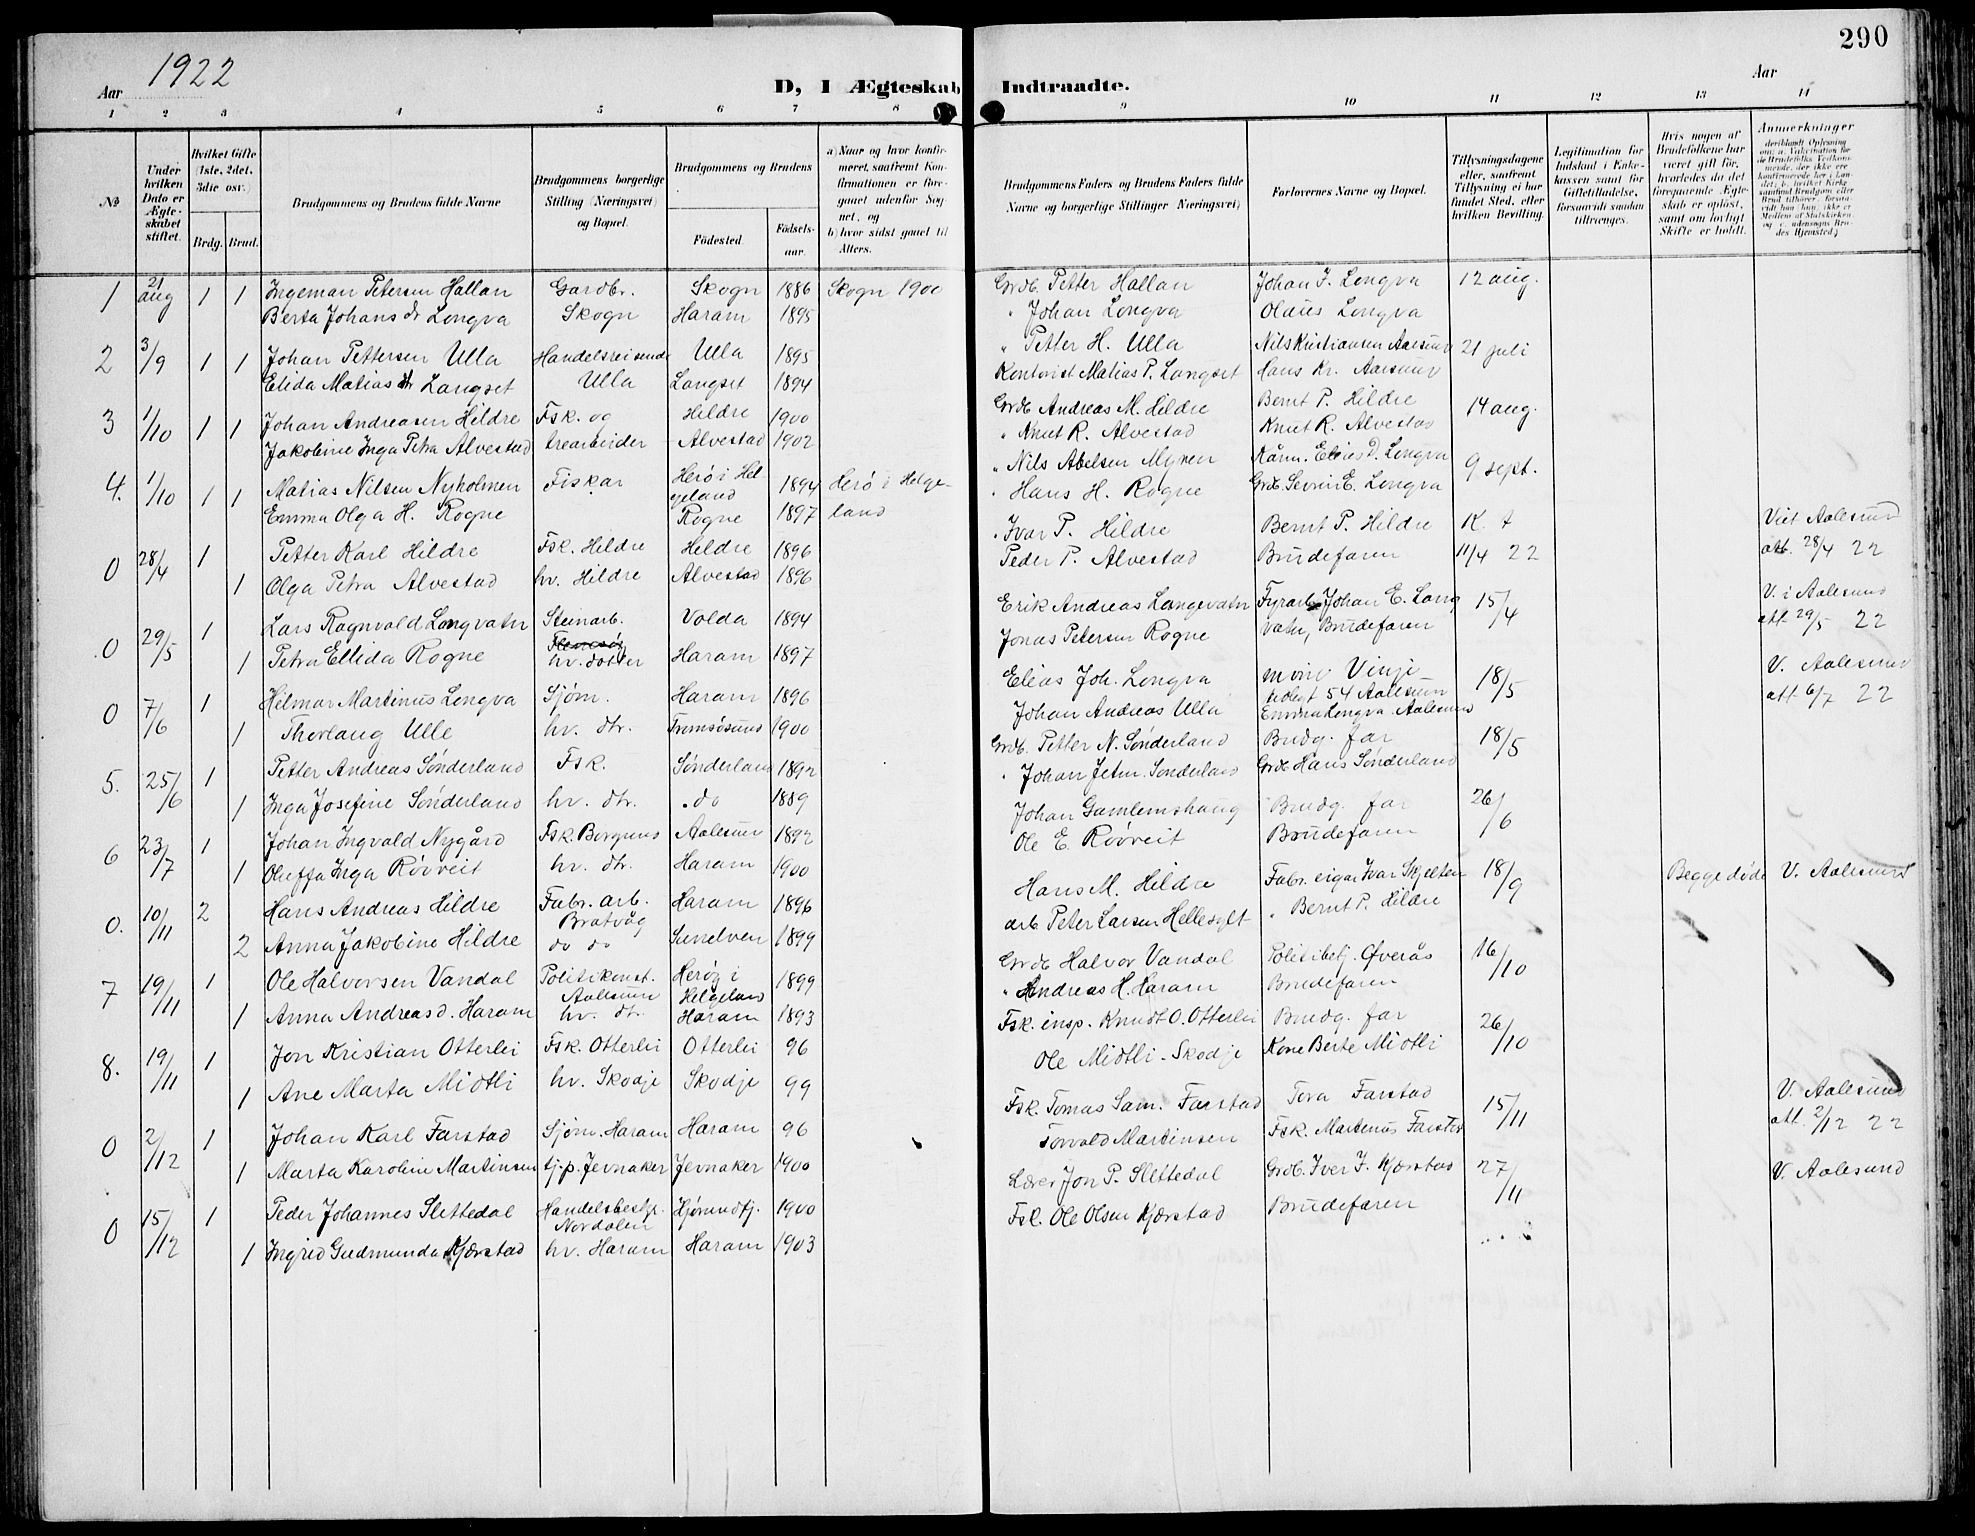 290
Aar 1922
D, I Ægteskab Indtraadte.
Aar
1 2 3 4 5 6 7 8 9 10 11 12 13 14
No
Under hvilken Dato er Ægteskabet stiftet.
Hvilket Gifte (1ste, 2det, 3die osv.)
Brdg. Brud.
Brudgommens og Brudens fulde Navne
Brudgommens borgerlige Stilling (Næringsvei) og Bopæl.
Brudgommens og Brudens
Fødested.
Fødselsaar.
a) Naar og hvor konfirmeret, saafremt Konfirmationen er foregaaet udenfor Sognet, og
b) hvor sidst gaaet til Alters.
Brudgommens Faders og Brudens Faders fulde Navne og borgerlige Stillinger (Næringsvei)
Forlovernes Navne og Bopæl.
Tillysningsdagene eller, saafremt Tillysning ei har fundet Sted, efter hvilken Bevilling.
Legitimation for Indskud i Enkekassen samt for Giftetilladelse, forsaavidt saadan tiltrænges.
Hvis nogen af Brudefolkene har været gift før, hvorledes da det foregaaende Ægteskab er opløst, samt om lovligt Skifte er holdt.
Anmerkninger
1 21 aug 1 1 Ingeman Petersen Hallan Gardbr. Skogn 1886 Skogn 1900 Grdb. Petter Hallan Johan J. Longva 12 aug.
Berta Johans dr Longva Skogn Haram 1895 " Johan Longva Olaus Longva
2 3/9 1 1 Johan Pettersen Ulla Handelsreisende Ulla 1895 " Petter H. Ulla Nils Kristiansen Aalesund 21 juli
Elida Matias dr Langset Ulla Langset 1894 Kontorist Matias P. Langset Hans Kr. Aalesund
3 1/10 1 1 Johan Andreasen Hildre Fsk. og Hildre 1900 Grdb Andreas M. Hildre Bernt P. Hildre 14 aug.
Jakobine Inga Petra Alvestad trearbeider Alvestad 1902 " Knut R. Alvestad Knut R. Alvestad
4. 1/10 1 1 Matias Nilsen Nyholmen Fiskar Herø i Helgeland 1894 Herø i Helgeland " Nils Abelsen Myren Elias D. Longva 9 sept.
Emma Olga H. Rogne Rogne 1897 " Hans H. Rogne Grdb. Sevrin E. Longva
0 28/4 1 Petter Karl Hildre Fsk. Hildre Hildre 1896 " Ivar P. Hildre Bernt P. Hildre K. t Viet Aalesund
1 Olga Petra Alvestad hv. Hildre Alvestad 1896 Peder P. Alvestad Brudefaren 11/4 22 att. 28/4 22
0 29/5 1 Lars Ragnvald Longvatn Steinarb. Volda 1894 Erik Andreas Langevatn Fyrarb. Johan E. Langvatn, Brudefaren 15/4 V. i Aalesund
1 Petra Ellida Rogne hv. dotter Haram 1897 Jonas Petersen Rogne att. 29/5 22
0 7/6 1 Hilmar Martinus Longva Sjøm. Haram 1896 Elias Joh. Longva Vinje 54 Aalesund 18/5 V. Aalesund
1 Thorlaug Ulle hv. dtr. Tromsøsund 1900 Johan Andreas Ulla Emma Longva Aalesund att. 6/7 22
5. 25/6 1 Petter Andreas Sønderland Fsk. Sønderland 1892 Grdb. Petter N. Sønderland Brudg. far 18/5
1 Inga Josefine Sønderland hv. dtr. do 1889 " Johan Jetm. Sønderland Grdb Hans Sønderland
6 23/7 1 Johan Ingvald Nygård Fsk. Borgund Aalesund 1892 Johan Gamlemshaug Brudg. far 26/6
1 Oluffa Inga Røvreit hv. dtr. Haram 1900 Ole E. Røvreit Brudefaren
0. 10/11 2 Hans Andreas Hildre Fabr. arb. Bratvåg Haram 1896 Hans M. Hildre Fabr. eigar Ivar Skjelten 18/9 Begge døde V. Aalesund
2 Anna Jakobine Hildre do do Sunelven 1899 arb Peter Larsen Hellesylt " Bernt P. Hildre
7 19/11 1 Ole Halvorsen Vandal Politikonst. Aalesund Herøy i Helgeland 1899 Grdb Halvor Vandal Politibetj. Øverås 16/10
1 Anna Andreas d. Haram hv. dtr. Haram 1893 " Andreas H. Haram Brudefaren
8. 19/11 1 Jon Kristian Otterlei Fsk. Otterlei Otterlei 96 Fsk. insp. Knudt O. Otterlei Brudg. far 26/10
1 Ane Marta Midtli hv. Skodje Skodje 99 Ole Midtli - Skodje Kone Berte Midtli
0 2/12 1 Johan Karl Farstad Sjøm. Haram Haram 96 Fsk. Tomas Sam. Farstad Tora Farstad 15/11 V. Aalesund
1 Marta Karoline Martinsen tj.p. Jevnaker Jevnaker 1900 Torvald Martinsen Fsk. Martenus Farstad att. 2/12 22
0 15/12 1 Peder Johannes Slettedal Handelsbestyr. Nordalen Hjørundfj. 1900 Lærer Jon P. Slettedal Grdb. Iver J. Kjærstad 27/11 V. Aalesund
1 Ingrid Gudmunda Kjærstad hv. Haram Haram 1903 Fsk. Ole Olsen Kjærstad Brudefaren